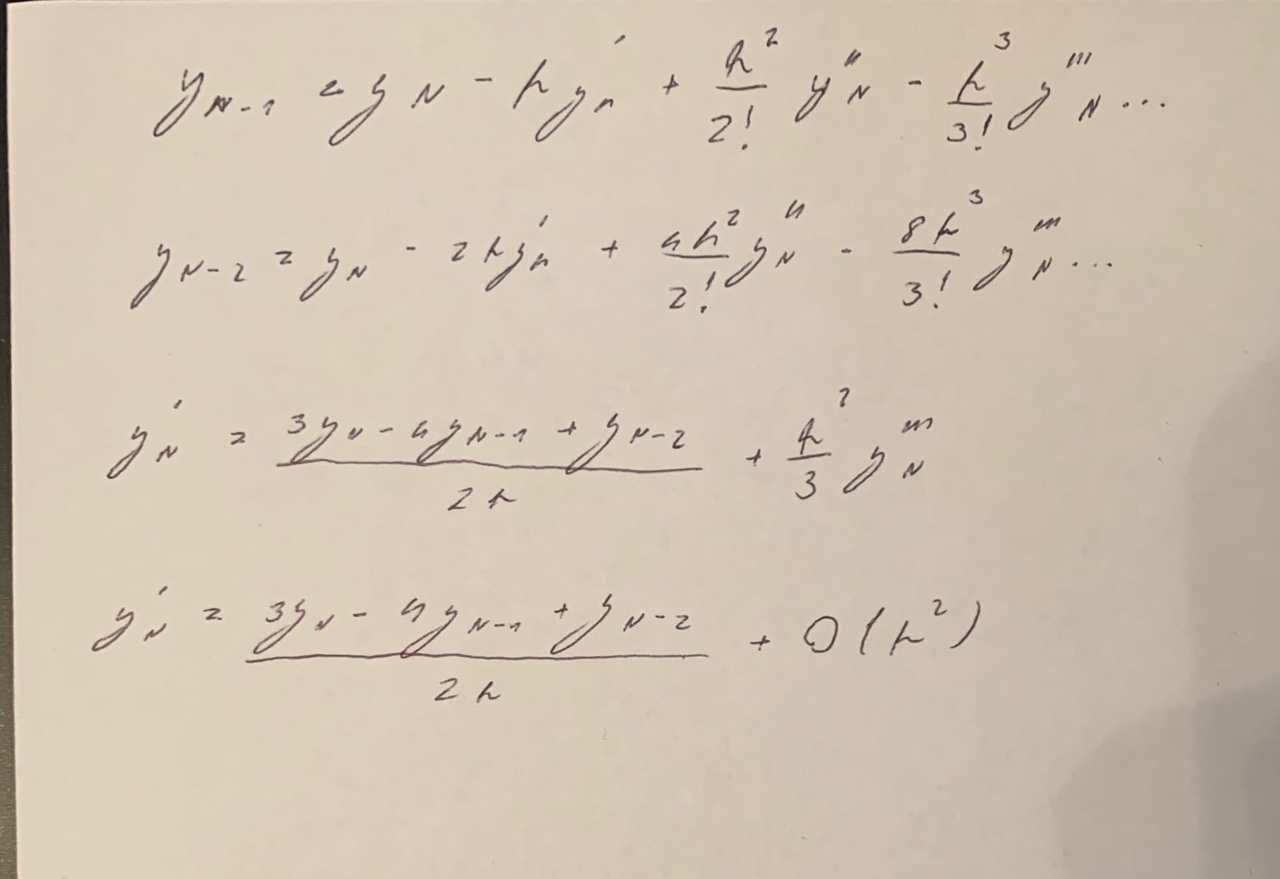 y_{N-1} = y_N - hy'_n + \frac{h^2}{2!} y''_N - \frac{h^3}{3!} y'''_N ...
y_{N-2} = y_N - 2hy'_n + \frac{4h^2}{2!} y''_N - \frac{8h^3}{3!} y'''_N ...
y'_N = \frac{3y_N - 4y_{N-1} + y_{N-2}}{2h} + \frac{h^2}{3} y'''_N
y'_N = \frac{3y_N - 4y_{N-1} + y_{N-2}}{2h} + O(h^2)